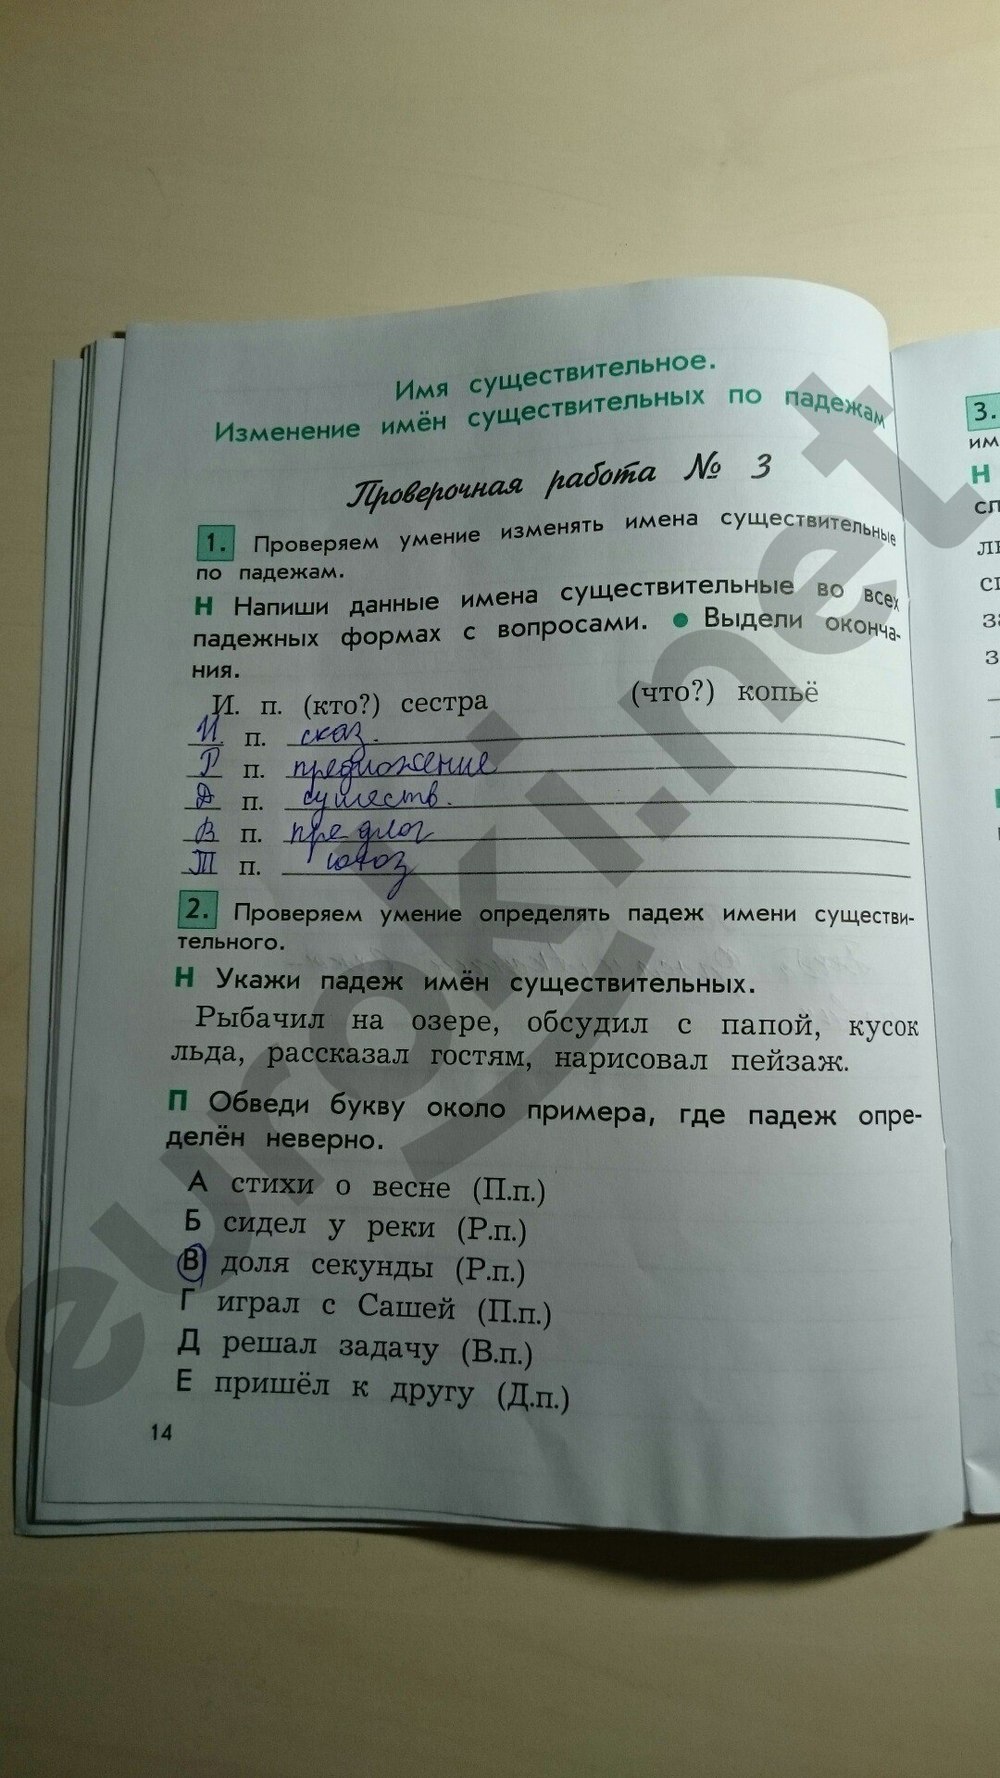 Имя существительное.
Изменение имён существительных по падежам
Проверочная работа № 3
1. Проверяем умение изменять имена существительные
по падежам.
Н Напиши данные имена существительные во всех
падежных формах с вопросами. ● Выдели оконча-
ния.
И. п. (кто?) сестра (что?) копьё
И п. сказ.
Р п. предложение
Д п. существ.
В п. предлог
Т п. союз
2. Проверяем умение определять падеж имени существи-
тельного.
Н Укажи падеж имён существительных.
Рыбачил на озере, обсудил с папой, кусок
льда, рассказал гостям, нарисовал пейзаж.
П Обведи букву около примера, где падеж опре-
делён неверно.
А стихи о весне (П.п.)
Б сидел у реки (Р.п.)
В доля секунды (Р.п.)
Г играл с Сашей (П.п.)
Д решал задачу (В.п.)
Е пришёл к другу (Д.п.)
14
3.
им
Н
euroki.net